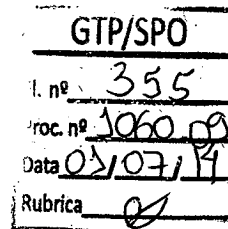 GTP/SPO
l. nº 355
roc. nº 1060 09
Data 01/07/14
Rubrica